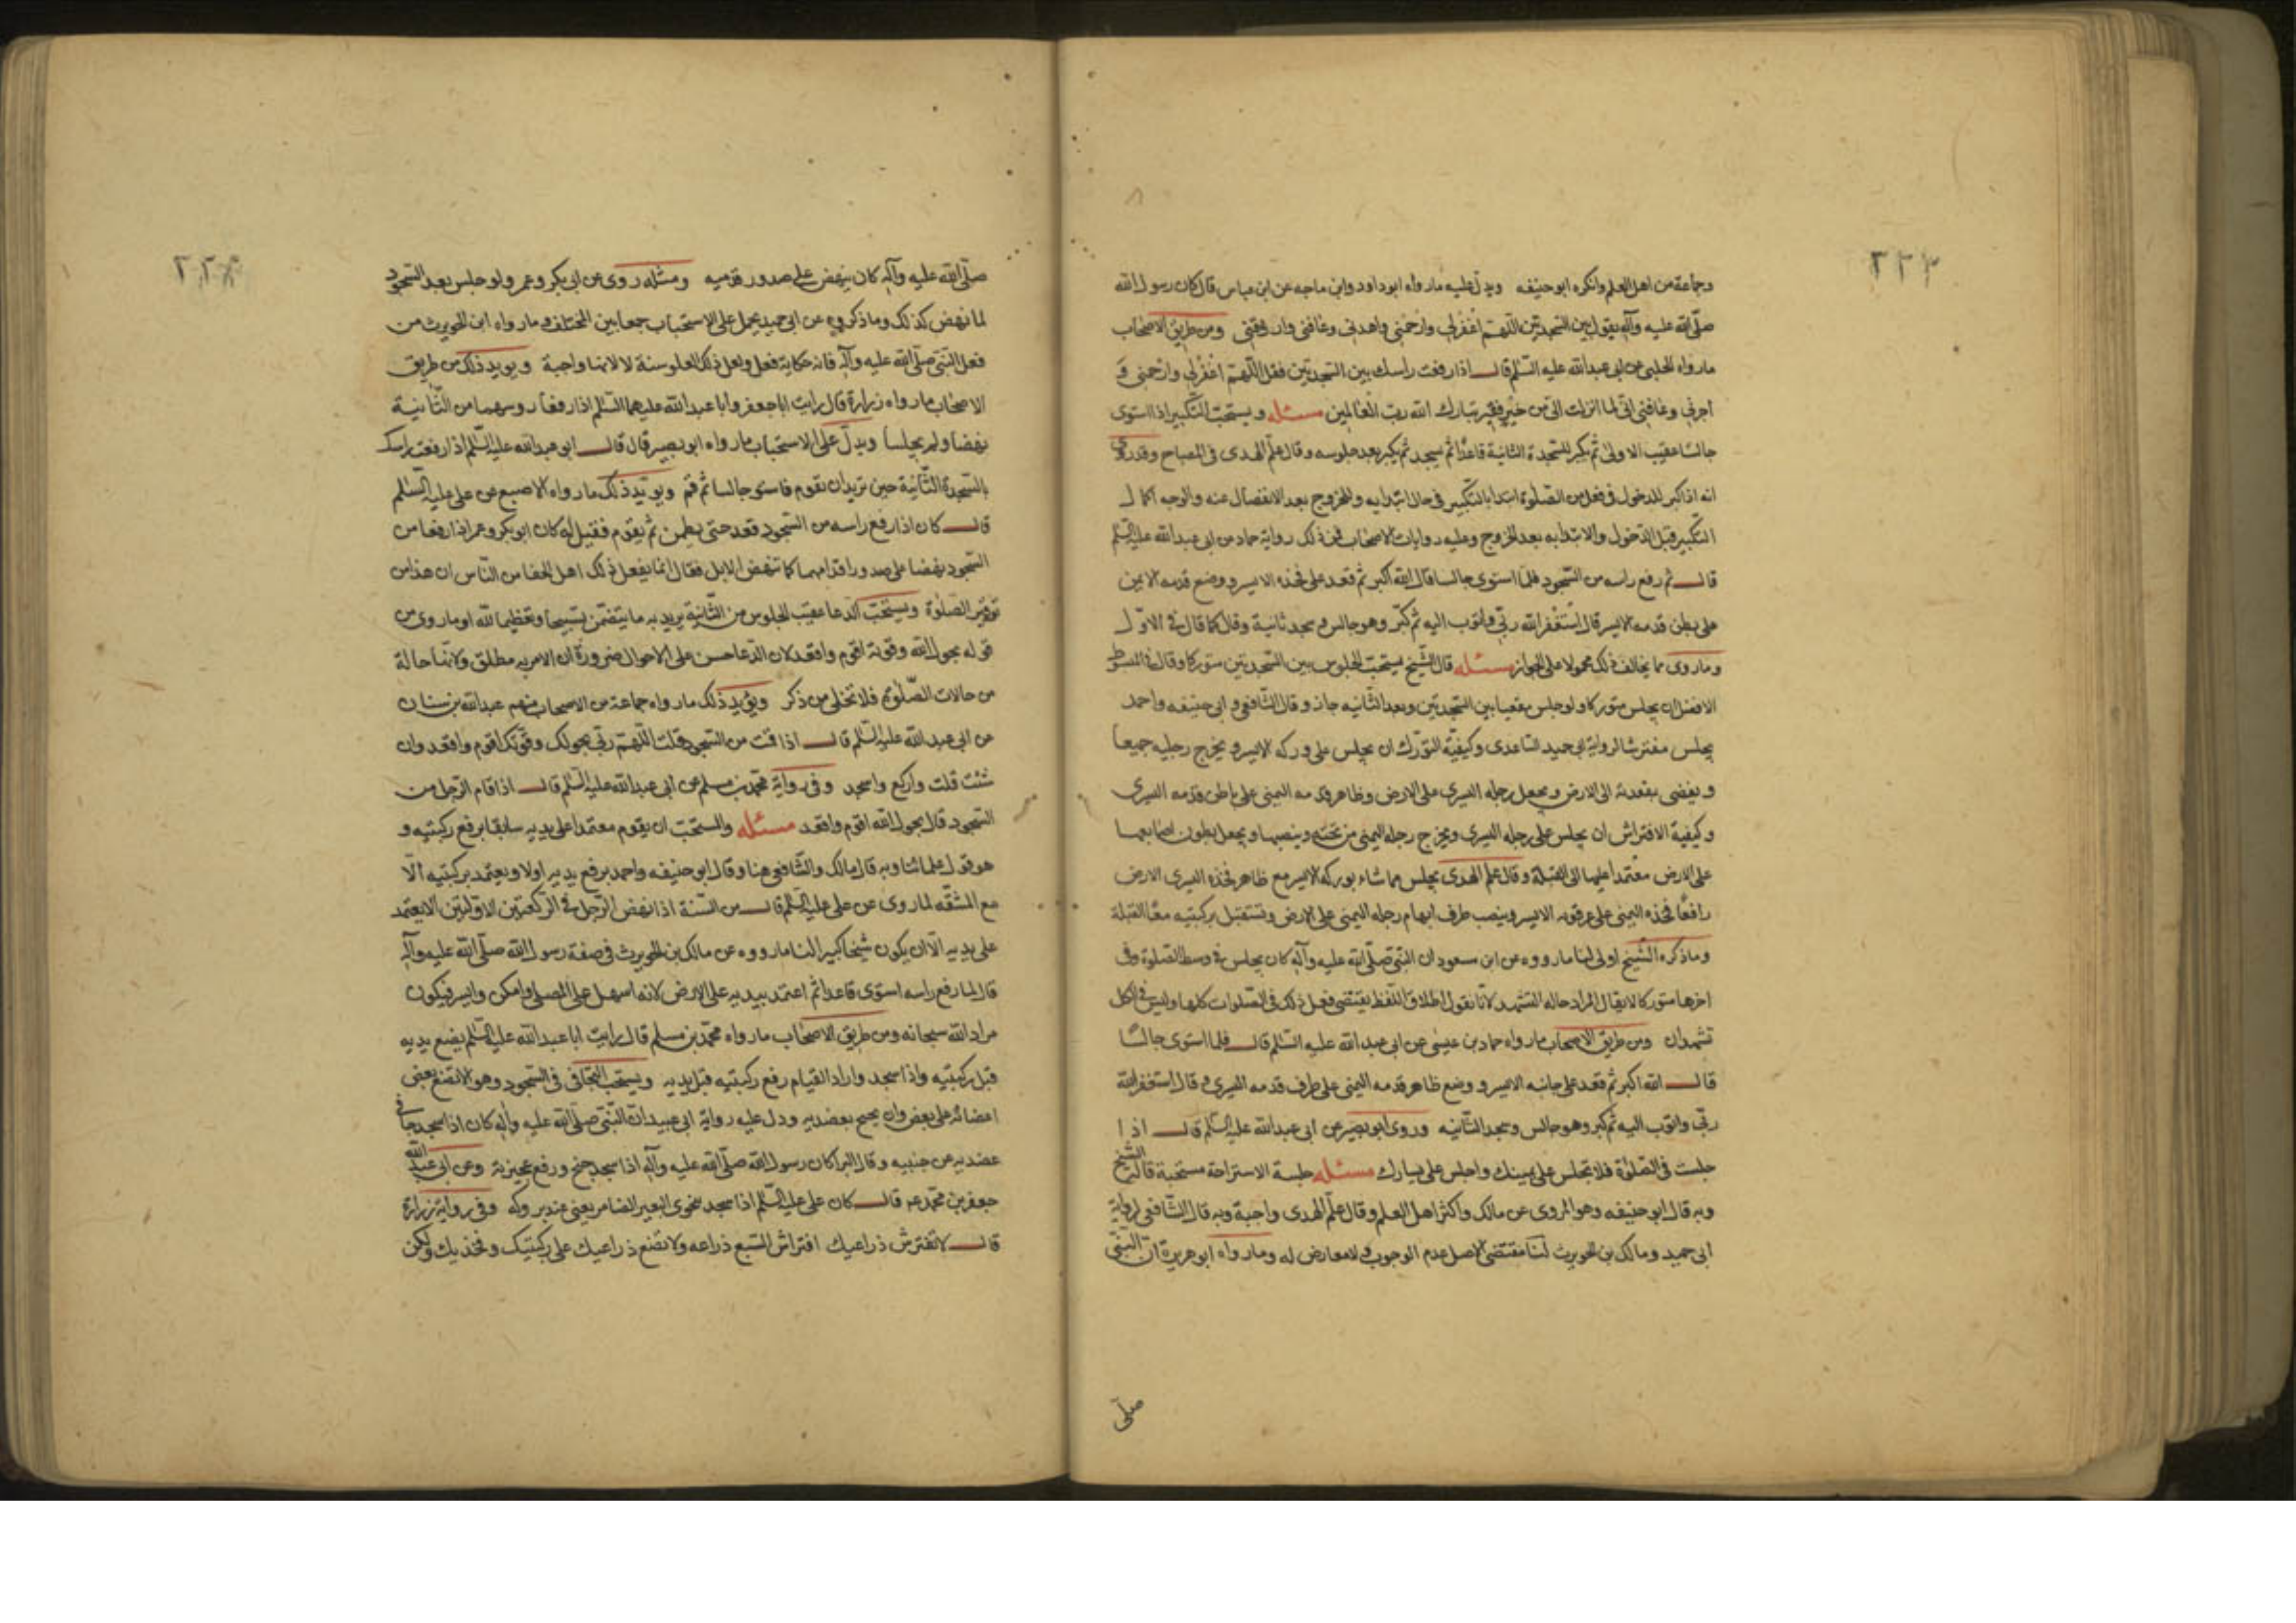 ٢٢٣
وجماعة من اهل العلم وانكره ابو حنيفه ويدل عليه مارواه ابو داود وابن ماجه عن ابن عباس قال كان رسول الله
صلّى الله عليه وآله يقول بين السجدتين اللّهمّ اغْفرلي وارْحمني واهدني وعافني وارزقني ومن طريق الاصحاب
مارواه الحلبى عن ابى عبدالله عليه السّلم قال اذا رفعت راسك بين السّجدتين فقل اللّهمّ اغْفرْلي وارْحمني وَ
اجرني وعافني انّي لما انزلت الىّ من خير فقير تبارك الله ربّ الْعالمين مسئله ويستحبّ التّكبير اذا استوى
جالسًا عقيب الاولى ثم يكبر للسّجدة الثّانية قاعدًا ثم يسجد ثم يكبر بعد جلوسه وقال علم الهدى فى المصباح وقدروى
انه اذا كبر للدخول فى فعل من الصّلوة ابتدا بالتّكبير فى حال ابتدايه وللخروج بعد الانفصال عنه والوجه اكمال
التّكبير قبل الدّخول والابتدا به بعد الخروج وعليه روايات الاصحاب فمن ذلك رواية حماد عن ابى عبدالله عليه السّلم
قال ثم رفع راسه من السّجود فلمّا استوى جالسا قال الله اكبر ثم قعد على فخذه الايسر ووضع قدمه الايمن
على بطن قدمه الايسر قال استغفر الله ربّي واتوب اليه ثم كبّر وهو جالس وسجد ثانية وقال كما قال فى الاوّل
وماروى مما يخالف ذلك محمولا على الجواز مسئله قال الشّيخ يستحبّ الجلوس بين السّجدتين متوركا وقال فى المبسوط
الافضل ان يجلس متوركا ولو جلس مقعيا بين السّجدتين وبعد الثّانيه جاز وقال الشّافعى وابى حنيفه واحمد
يجلس مفترشا لرواية ابى حميد السّاعدى وكيفيّة التّورّك ان يجلس على وركه الايسر ويخرج رجليه جميعاً
ويفضى بمقعدته الى الارض ويجعل رجله اليسرى على الارض وظاهر قدمه اليمنى على باطن قدمه اليسرى
وكيفية الافتراش ان يجلس على رجله اليسرى ويخرج رجله اليمنى من تحته وينصبها ويجعل بطون اصابعها
على الارض معتمدا عليها الى القبلة وقال علم الهدى يجلس مماشا بوركه الايسر مع ظاهر فخذه اليسرى الارض
رافعًا فخذه اليمنى على عرقوبه الايسر وينصب طرف ابهام رجله اليمنى على الارض وتستقبل بركبتيه معًا القبلة
وماذكره الشّيخ اولى لنا مارووه عن ابن مسعود ان النّبّي صلّى الله عليه وآله كان يجلس فى وسط الصّلوة وفى
اخرها متوركا لا يقال المراد حاله التشهد لانّا نقول اطلاق اللّفظ يقتضى فعل ذلك فى الصّلوات كلها وليس فى الكل
تشهدان ومن طريق الاصحاب مارواه حماد بن عيسى عن ابى عبدالله عليه السّلم قال فلما استوى جالسًا
قال الله اكبر ثم قعد على جانبه الايسر ووضع ظاهر قدمه اليمنى على طرف قدمه اليسرى وقال استغفر الله
ربّي واتوب اليه ثم كبر وهو جالس وسجد الثّانيه وروى ابو بصير عن ابى عبدالله عليه السّلم قال اذا
جلست فى الصّلوة فلا تجلس على يمينك واجلس على يسارك مسئله جلسة الاستراحة مستحبة قاله الشّيخ
وبه قال ابو حنيفه وهو المروى عن مالك واكثر اهل العلم وقال علم الهدى واجبة وبه قال الشّافعى لرواية
ابى حميد ومالك بن الحويرث لنا مقتضى الاصل عدم الوجوب ولا معارض له ومارواه ابو هريرة ان النّبيّ
صلّى
صلّى الله عليه وآله كان ينهض على صدور قدميه ومثله روى عن ابى بكر وعمر ولو جلس بعد السّجود
لما نهض كذلك وماذكروه عن ابى حميد يحمل على الاستحباب جمعا بين المختلف ومارواه ابن الحويرث من
فعل النّبىّ صلّى الله عليه وآله فانه حكاية فعل ولعل ذلك لعله سنة لا لانها واجبة ويويد ذلك من طريق
الاصحاب مارواه زرارة قال رايت ابا جعفر وابا عبدالله عليهما السّلم اذا رفعا روسهما من الثّانية
نهضا ولم يجلسا ويدلّ على الاستحباب مارواه ابو بصير قال قال ابو عبدالله عليه السّلم اذا رفعت راسك
بالسّجدة الثّانية حين تريدان تقوم فاستو جالسا ثم قم ويويّد ذلك مارواه الاصبغ عن على عليه السّلم
قال كان اذا رفع راسه من السّجود قعد حتى يطمئن ثم يقوم فقيل له كان ابو بكر وعمر اذا رفعا من
السّجود نهضا على صدور اقدامهما كما تنهض الابل فقال انما يفعل ذلك اهل الجفا من النّاس ان هذا من
توقير الصلوة ويستحبّ الدعا عقيب الجلوس من الثّانية يريد به ما يتضمّن تسبيحا وتعظيما لله او ماروى من
قوله بحول الله وقوته اقوم واقعد لان الدّعا حسن على الاحوال ضرورة ان الامر به مطلق ولانها حالة
من حالات الصّلوة فلا تخلى من ذكر ويؤيد ذلك مارواه جماعة من الاصحاب منهم عبدالله بن سنان
عن ابى عبدالله عليه السّلم قال اذا قمت من السّجود قلت اللّهمّ ربّي بحولك وقوّتك اقوم واقعد وان
شئت قلت واركع واسجد وفى رواية محمّد بن مسلم عن ابى عبدالله عليه السّلم قال اذا قام الرّجل من
السّجود قال بحول الله اقوم واقعد مسئله والمستحبّ ان يقوم معتمدا على يديه سابقا برفع ركبتيه و
هو قول علمائنا وبه قال مالك والشّافعى هنا وقال ابو حنيفه واحمد يرفع يديه اولا ويعتمد بركبتيه الّا
مع المشقّه لماروى عن على عليه السّلم قال من السّنة اذا نهض الرّجل فى الركعتين الاوّلتين الا يعتمد
على يديه الّا ان يكون شيخا كبيرا لنا مارووه عن مالك بن الحويرث فى صفة رسول الله صلّى الله عليه وآله
قال لما رفع راسه استوى قاعدا ثم اعتمد بيديه على الارض لانه اسهل على المصلى وامكن وايسر فيكون
مراد الله سبحانه ومن طريق الاصحاب مارواه محمّد بن مسلم قال رايت ابا عبدالله عليه السّلم يضع يديه
قبل ركبتيه واذا سجد واراد القيام رفع ركبتيه قبل يديه ويستحبّ التّجافى فى السّجود وهو الا تضع بعض
اعضائه على بعض وان يجنح بعضديه ودل عليه رواية ابى عبيد ان النّبّي صلّى الله عليه وآله كان اذا سجد جافى
عضديه عن جنبيه وقال البرا كان رسول الله صلّى الله عليه وآله اذا سجد جنح ورفع عجيزته وعن ابى عبد الله
جعفر بن محمّد عم قال كان على عليه السّلم اذا سجد تخوى البعير الضامر يعنى عند بروكه وفى رواية زرارة
قال لا تفترش ذراعيك افتراش السّبع ذراعه ولا تضع ذراعيك على ركبتيك وفخذيك ولكن